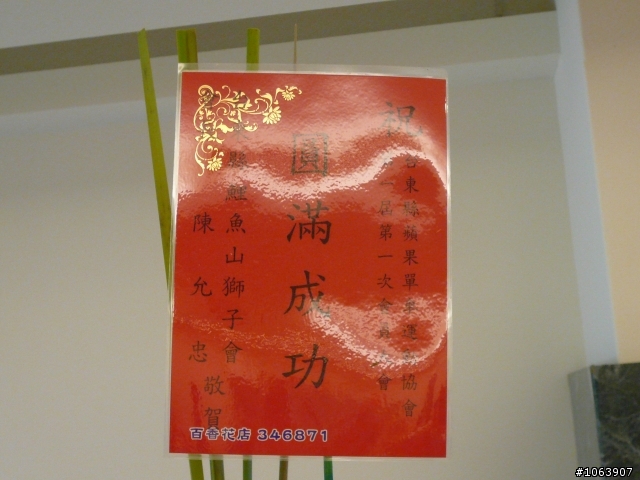 祝
台東縣蘋果單車運動協會
第一屆第一次會員大會
圓滿成功
台東縣鯉魚山獅子會
陳允忠
敬賀
百香花店 346871
#1063907